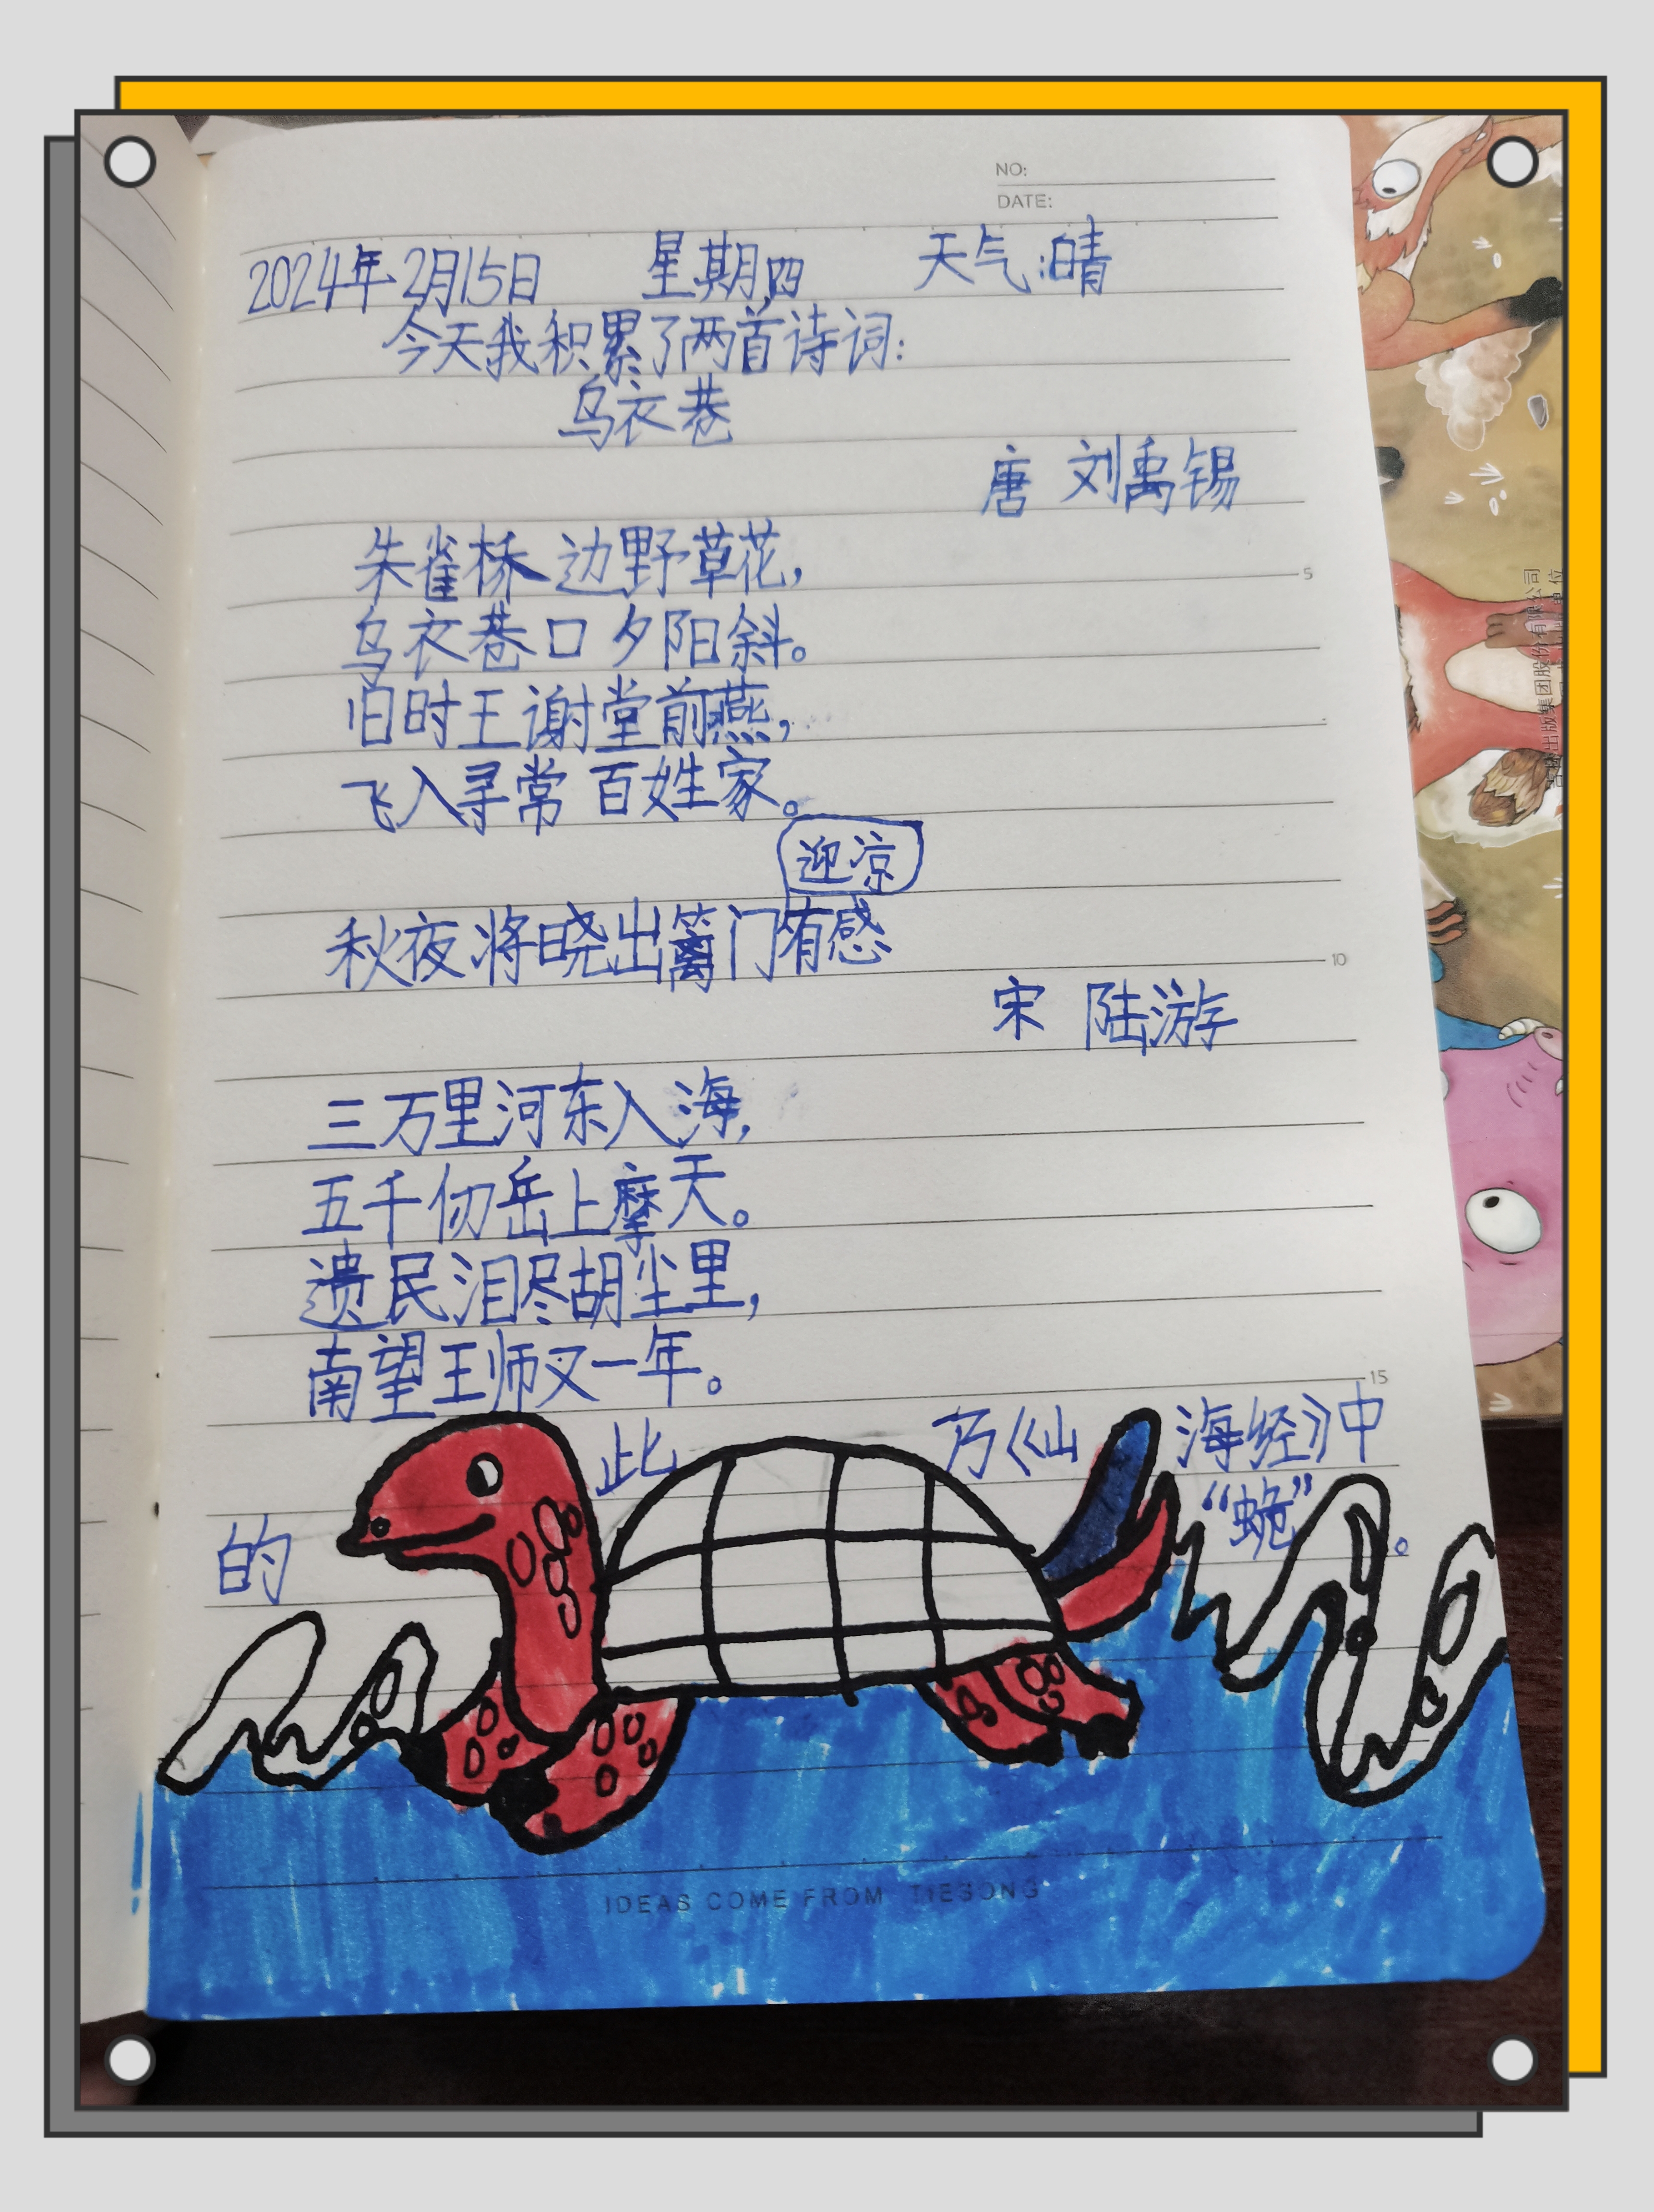 NO:
DATE:
2024年2月15日 星期四 天气:晴
今天我积累了两首诗词:
乌衣巷
唐 刘禹锡
朱雀桥边野草花,
乌衣巷口夕阳斜。
旧时王谢堂前燕,
飞入寻常百姓家。
迎凉
秋夜将晓出篱门有感
宋 陆游
三万里河东入海,
五千仞岳上摩天。
遗民泪尽胡尘里,
南望王师又一年。
此 乃《山 海经》中
的 “蛫”。
5
10
15
IDEAS COME FROM TIESONG
出版集团股份有限公司